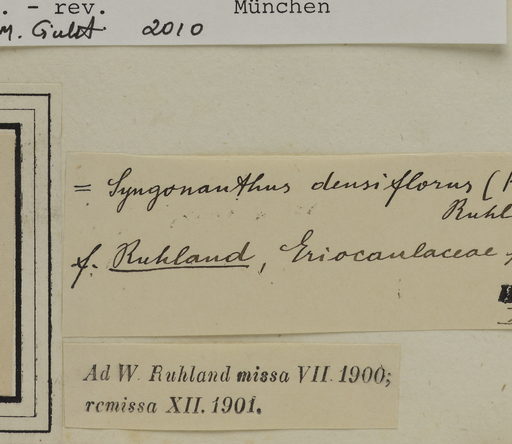 . - rev. München
M. Giulitti 2010
= Syngonanthus densiflorus (
Ruhl
f. Ruhland, Eriocaulaceae
Ad W. Ruhland missa VII. 1900;
remissa XII. 1901.